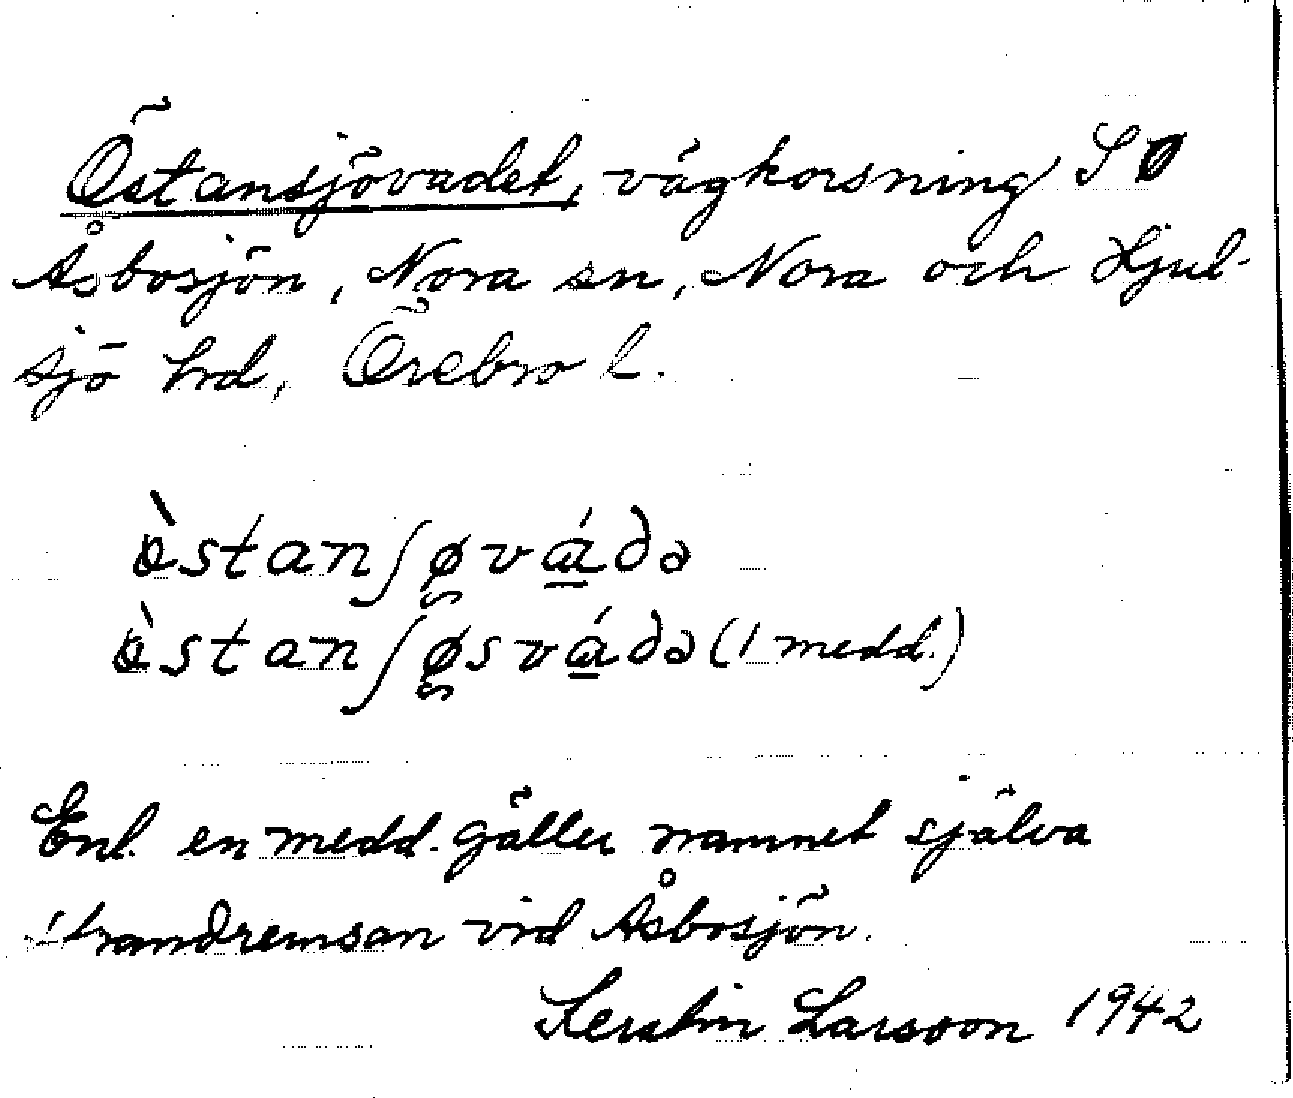 Östansjövadet, vägkorsning SO
Åsbosjön, Nora sn, Nora och Hjul-
sjö hrd, Örebro l.
ö̀stanʃø̰vá̲də
ö̀stanʃø̰svá̲də (1 medd.)
Enl. en medd. gäller namnet själva
strandremsan vid Åsbosjön.
Kerstin Larsson 1942